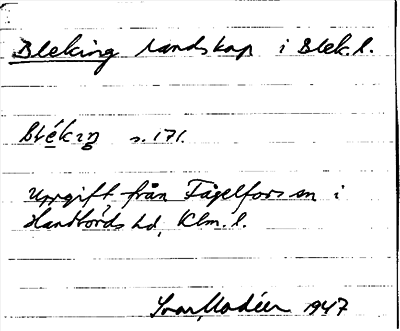 Bleking landskap i Blek.l.
blékiŋ s. 171.
Uppgift från Fågelfors sn i
Handbörds hd, Klm.l.
Ivar Modéer 1947